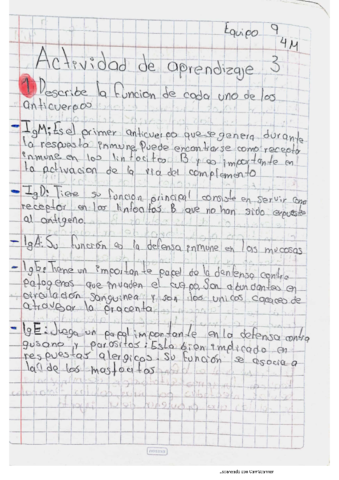 Equipo 9
4M
Actividad de aprendizaje 3
1 Describe la funcion de cada uno de los
anticuerpos
- IgM: Es el primer anticuerpo que se genera durante
la respuesta inmune. Puede encontrarse como receptor
inmune en los linfocitos B y es importante en
la activacion de la via del complemento
- IgD: Tiene su funcion principal consiste en servir como
receptor en los linfocitos B que no han sido expuesto
al antigeno.
- IgA: Su función es la defensa inmune en las mucosas
- IgG: Tiene un importante papel de la defensa contra
patogenos que invaden el cuerpo. Son abundantes en
circulación sanguinea y son los unicos capaces de
atravesar la placenta.
- IgE: Juega un papel importante en la defensa contra
gusano y parasitos: Esta bien implicado en
respuestas alergicas. Su función se asocia a
la de los mastocitos
Scanned with CamScanner